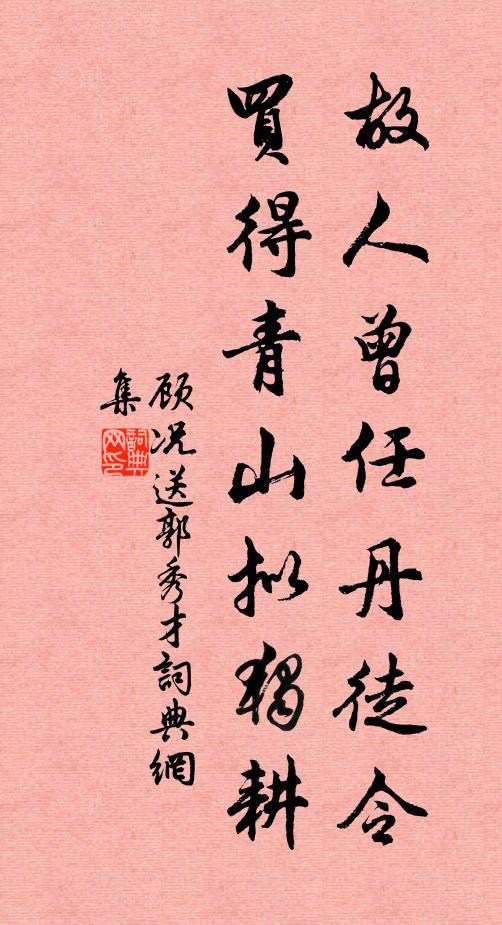 故人曾任丹徒令
買得青山拟獨耕
顾况送郭秀才詞典網
集
詞典
网印